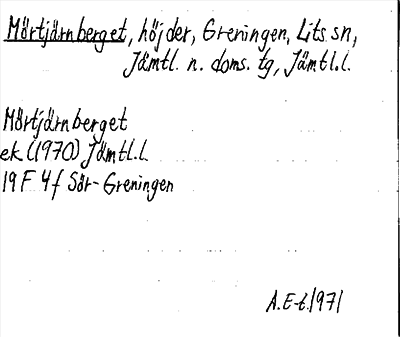 Mörtjärnberget, höjder, Greningen, Lits sn,
Jämtl. n. doms. tg, Jämtl.l.
Mörtjärnberget
ek (1970) Jämtl.l.
19 F 4 f Sör-Greningen
A.E-t.1971